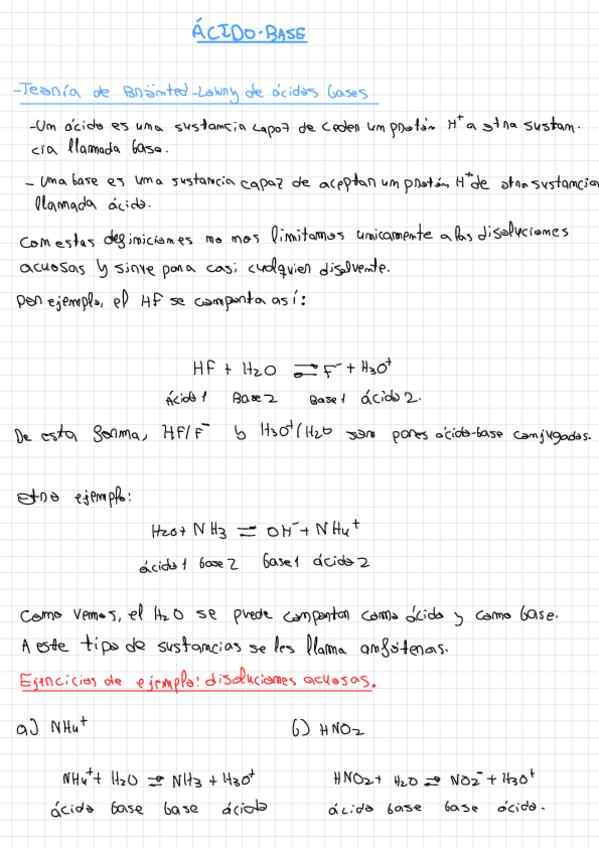 ÁCIDO-BASE
-Teoría de Brönted-Lowry de ácidos bases
-Um ácido es una sustancia capaz de ceder um protón H⁺ a otra sustan-
cia llamada base.
- Una base es uma sustancia capaz de aceptar um protón H⁺ de otra sustancia
llamada ácido.
Com estas definiciones no nos limitamos unicamente a las disoluciones
acuosas y sirve para casi cualquier disolvente.
Por ejemplo, el HF se comporta así:
HF + H2O ⇌ F⁻ + H3O⁺
Ácido 1 Base 2 Base 1 ácido 2.
De esta forma, HF/F⁻ y H3O⁺/H2O son pares ácido-base conjugados.
Otro ejemplo:
H2O + NH3 ⇌ OH⁻ + NH4⁺
ácido 1 base 2 base 1 ácido 2
Como vemos, el H2O se puede comportar como ácido y como base.
A este tipo de sustancias se les llama anfóteras.
Ejercicios de ejemplo: disoluciones acuosas.
a) NH4⁺ b) HNO2
NH4⁺ + H2O ⇌ NH3 + H3O⁺ HNO2 + H2O ⇌ NO2⁻ + H3O⁺
ácido base base ácido ácido base base ácido.